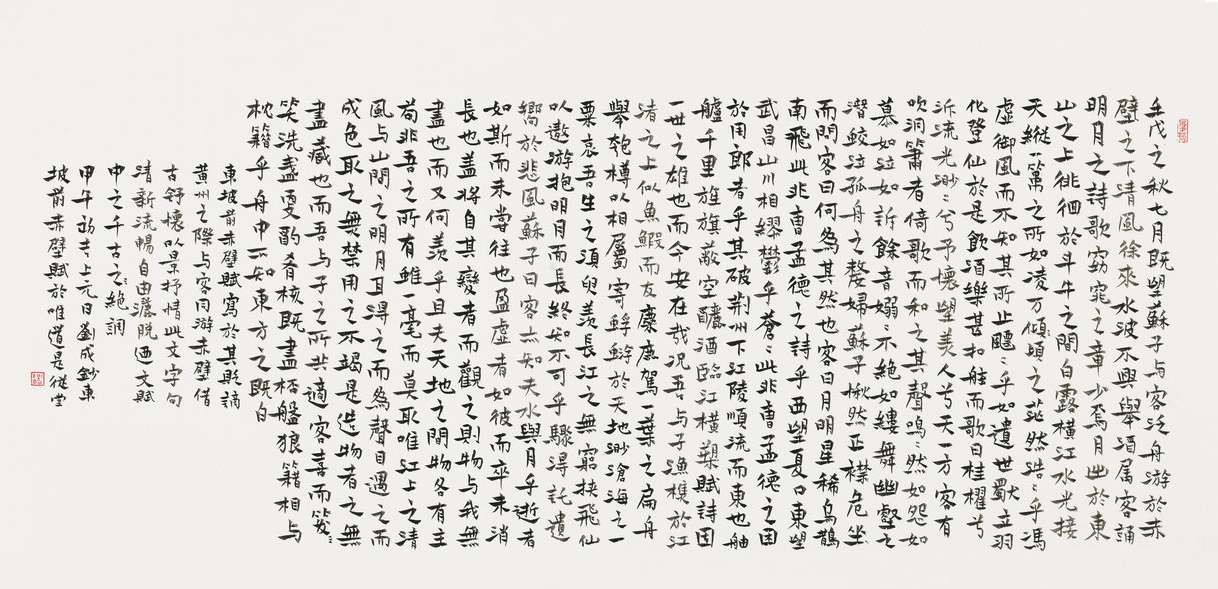 壬戌之秋七月既望蘇子与客泛舟游於赤
壁之下清風徐來水波不興舉酒属客誦
明月之詩歌窈窕之章少焉月出於東
山之上徘徊於斗牛之間白露横江水光接
天縱一葦之所如凌万傾頃之茫然浩〻乎馮
虚御風而不知其所止飄〻乎如遺世獨立羽
化登仙於是飲酒樂甚扣舷而歌曰桂櫂兮
泝流光渺〻兮予懷望美人兮天一方客有
吹洞簫者倚歌而和之其聲嗚〻然如怨如
慕如泣如訴餘音嫋〻不絶如縷舞幽壑之
潛鮫泣孤舟之嫠婦蘇子愀然正襟危坐
而問客曰何為其然也客曰月明星稀烏鵲
南飛此非曹孟德之詩乎西望夏口東望
武昌山川相繆鬱乎蒼〻此非曹孟德之困
於周郎者乎其破荆州下江陵順流而東也舳
艫千里旌旗蔽空釃酒臨江横槊賦詩固
一世之雄也而今安在哉况吾与子漁樵於江
渚之上侣魚鰕而友麋鹿駕一葉之扁舟
舉匏樽以相屬寄蜉蝣於天地渺滄海之一
粟哀吾生之須臾羨長江之無窮挾飛仙
以遨游抱明月而長終知不可乎驟得託遺
嚮於悲風蘇子曰客亦知夫水與月乎逝者
如斯而未嘗往也盈虚者如彼而卒未消
長也盖將自其變者而觀之則物与我無
盡也而又何羨乎且夫天地之間物各有主
苟非吾之所有雖一毫而莫取唯江上之清
風与山間之明月耳得之而為聲目遇之而
成色取之無禁用之不竭是造物者之無
盡藏也而吾与子之所共適客喜而笑〻
笑洗盞更酌肴核既盡杯盤狼籍相与
枕籍乎舟中不知東方之既白
東坡前赤壁賦寫於其貶謫
黄州之際与客同游赤壁借
古舒懷以景抒情此文字句
清新流暢自由灑脱迺文賦
中之千古之絶調
甲午初士上元日劉成鈔東
坡前赤壁賦於唯道是從堂